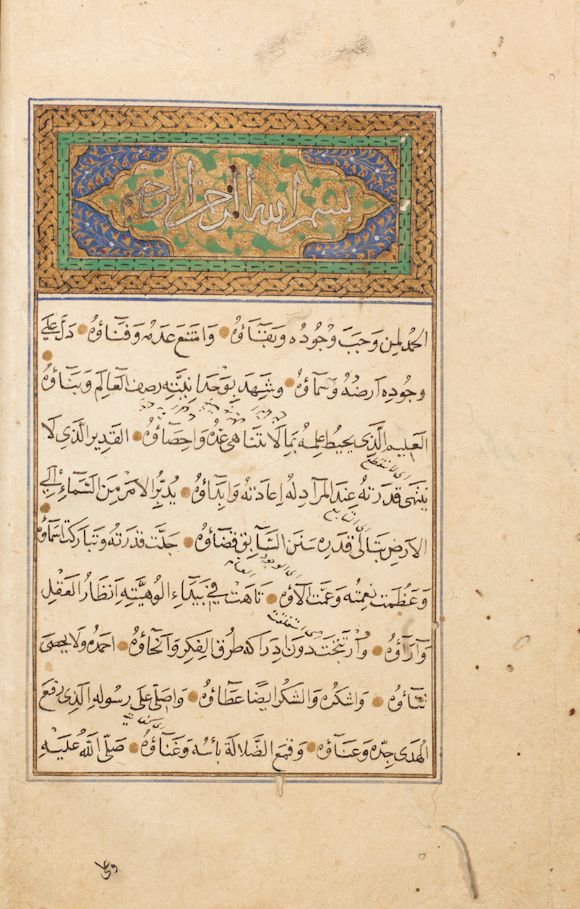 بسم الله الرحمن الرحيم
الحمد لمن وجب وجوده وبقاؤه وامتنع عدمه وفناؤه دل على
وجوده ارضه وسماؤه وشهد بوحدانيته رصف العالم وبناؤه
العليم الذي يحيط علمه بما لا يتناهى عده واحصاؤه القدير الذي لا
اى لا تنقطع
ينتهى قدرته عند المراد له اعادته وابداؤه يدبر الامر من السماء الى
اى التابع
الارض بتالى قدره سنن السابق قضاؤه جلت قدرته وتباركت اسماؤه
وعظمت نعمته وعمت الاؤه تاهت في بيداء الوهيته انظار العقل
وآراؤه وارتتجت دون ادراكه طرق الفكر وانحاؤه احمده ولا يحصى
ثناؤه واشكره والشكر ايضا عطاؤه واصلى على رسوله الذي رفع
الهدى جده وعناؤه وقمع الضلالة بأسه وغناؤه صلى الله عليه
وعلى